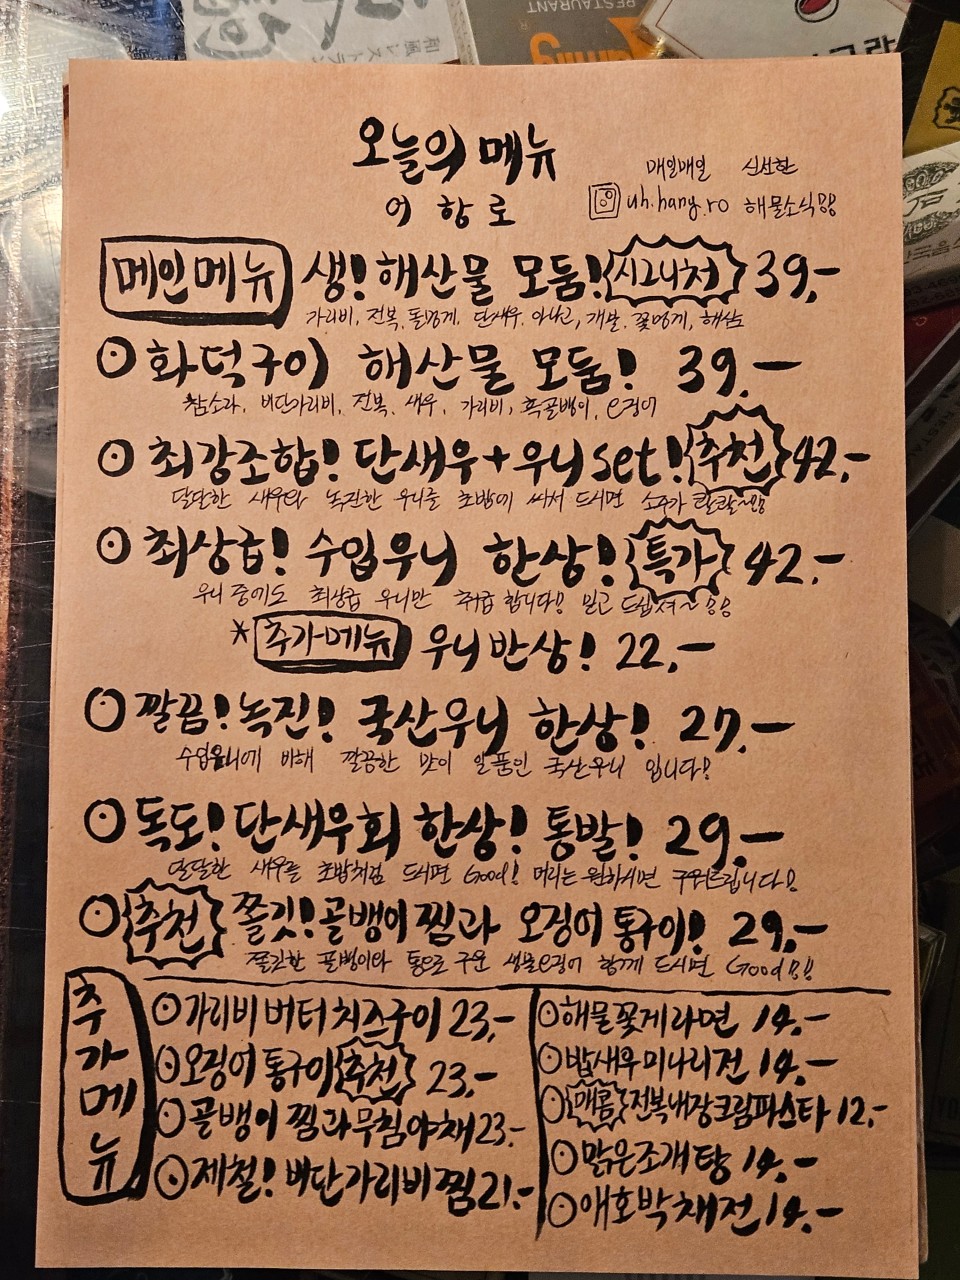 RESTAURANT
오늘의 메뉴
어항로
매일매일 신선한
uh.hang.ro 해물소식!!
메인메뉴 생! 해산물 모둠! 시그니처 39.-
가리비, 전복, 돌멍게, 단새우, 아나고, 개불, 꽃멍게, 해삼
화덕구이 해산물 모둠! 39.-
참소라, 비단가리비, 전복, 새우, 가리비, 흑골뱅이, 오징어
최강조합! 단새우+우니 set! 추천 42.-
달달한 새우와 녹진한 우니를 초밥에 싸서 드시면 소주가 콸콸~!!
최상급! 수입우니 한상! 특가 42.-
우니 중에도 최상급 우니만 취급합니다! 믿고 드십쇼~!!
* 추가메뉴 우니반상! 22.-
깔끔! 녹진! 국산우니 한상! 27.-
수입우니에 비해 깔끔한 맛이 일품인 국산우니 입니다!
독도! 단새우회 한상! 통발! 29.-
달달한 새우를 초밥처럼 드시면 Good! 머리는 원하시면 구워드립니다!
추천 쫄깃! 골뱅이찜과 오징어통구이! 29.-
쫄깃한 골뱅이와 통으로 구운 생물오징어 함께 드시면 Good!!
추가메뉴
가리비 버터치즈구이 23.-
오징어 통구이 추천 23.-
골뱅이 찜과무침야채 23.-
제철! 비단가리비찜 21.-
해물꽃게라면 14.-
밥새우미나리전 14.-
매콤 전복내장크림파스타 12.-
맑은조개탕 14.-
애호박채전 14.-